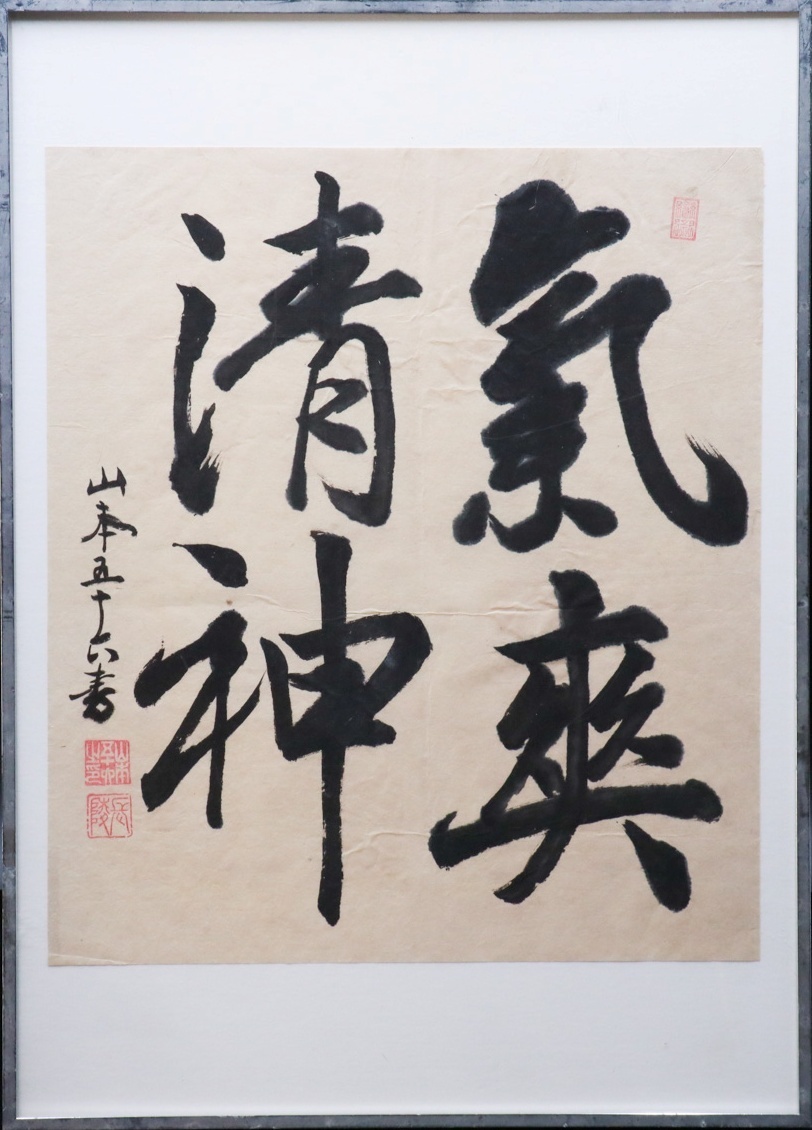 氣爽
清神
山本五十六書